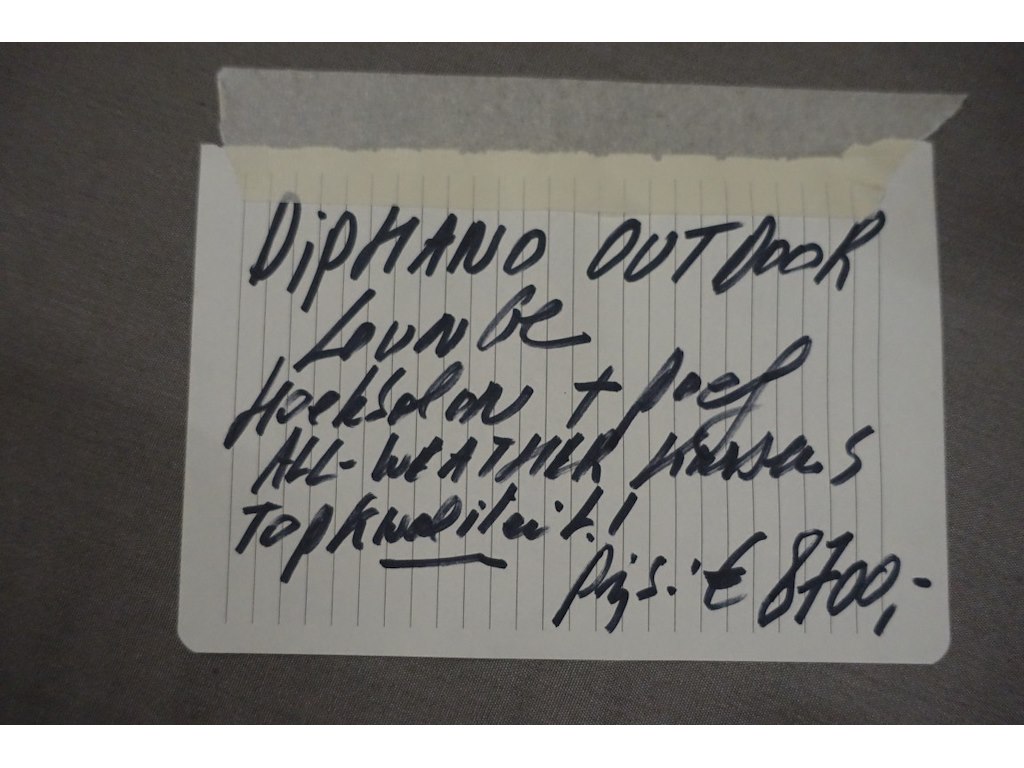 DipHANO OUTDOOR
LounGe
Hoeksalon + poef
ALL-WEATHER kussens
Topkwaliteit!
Prijs: € 8700,-